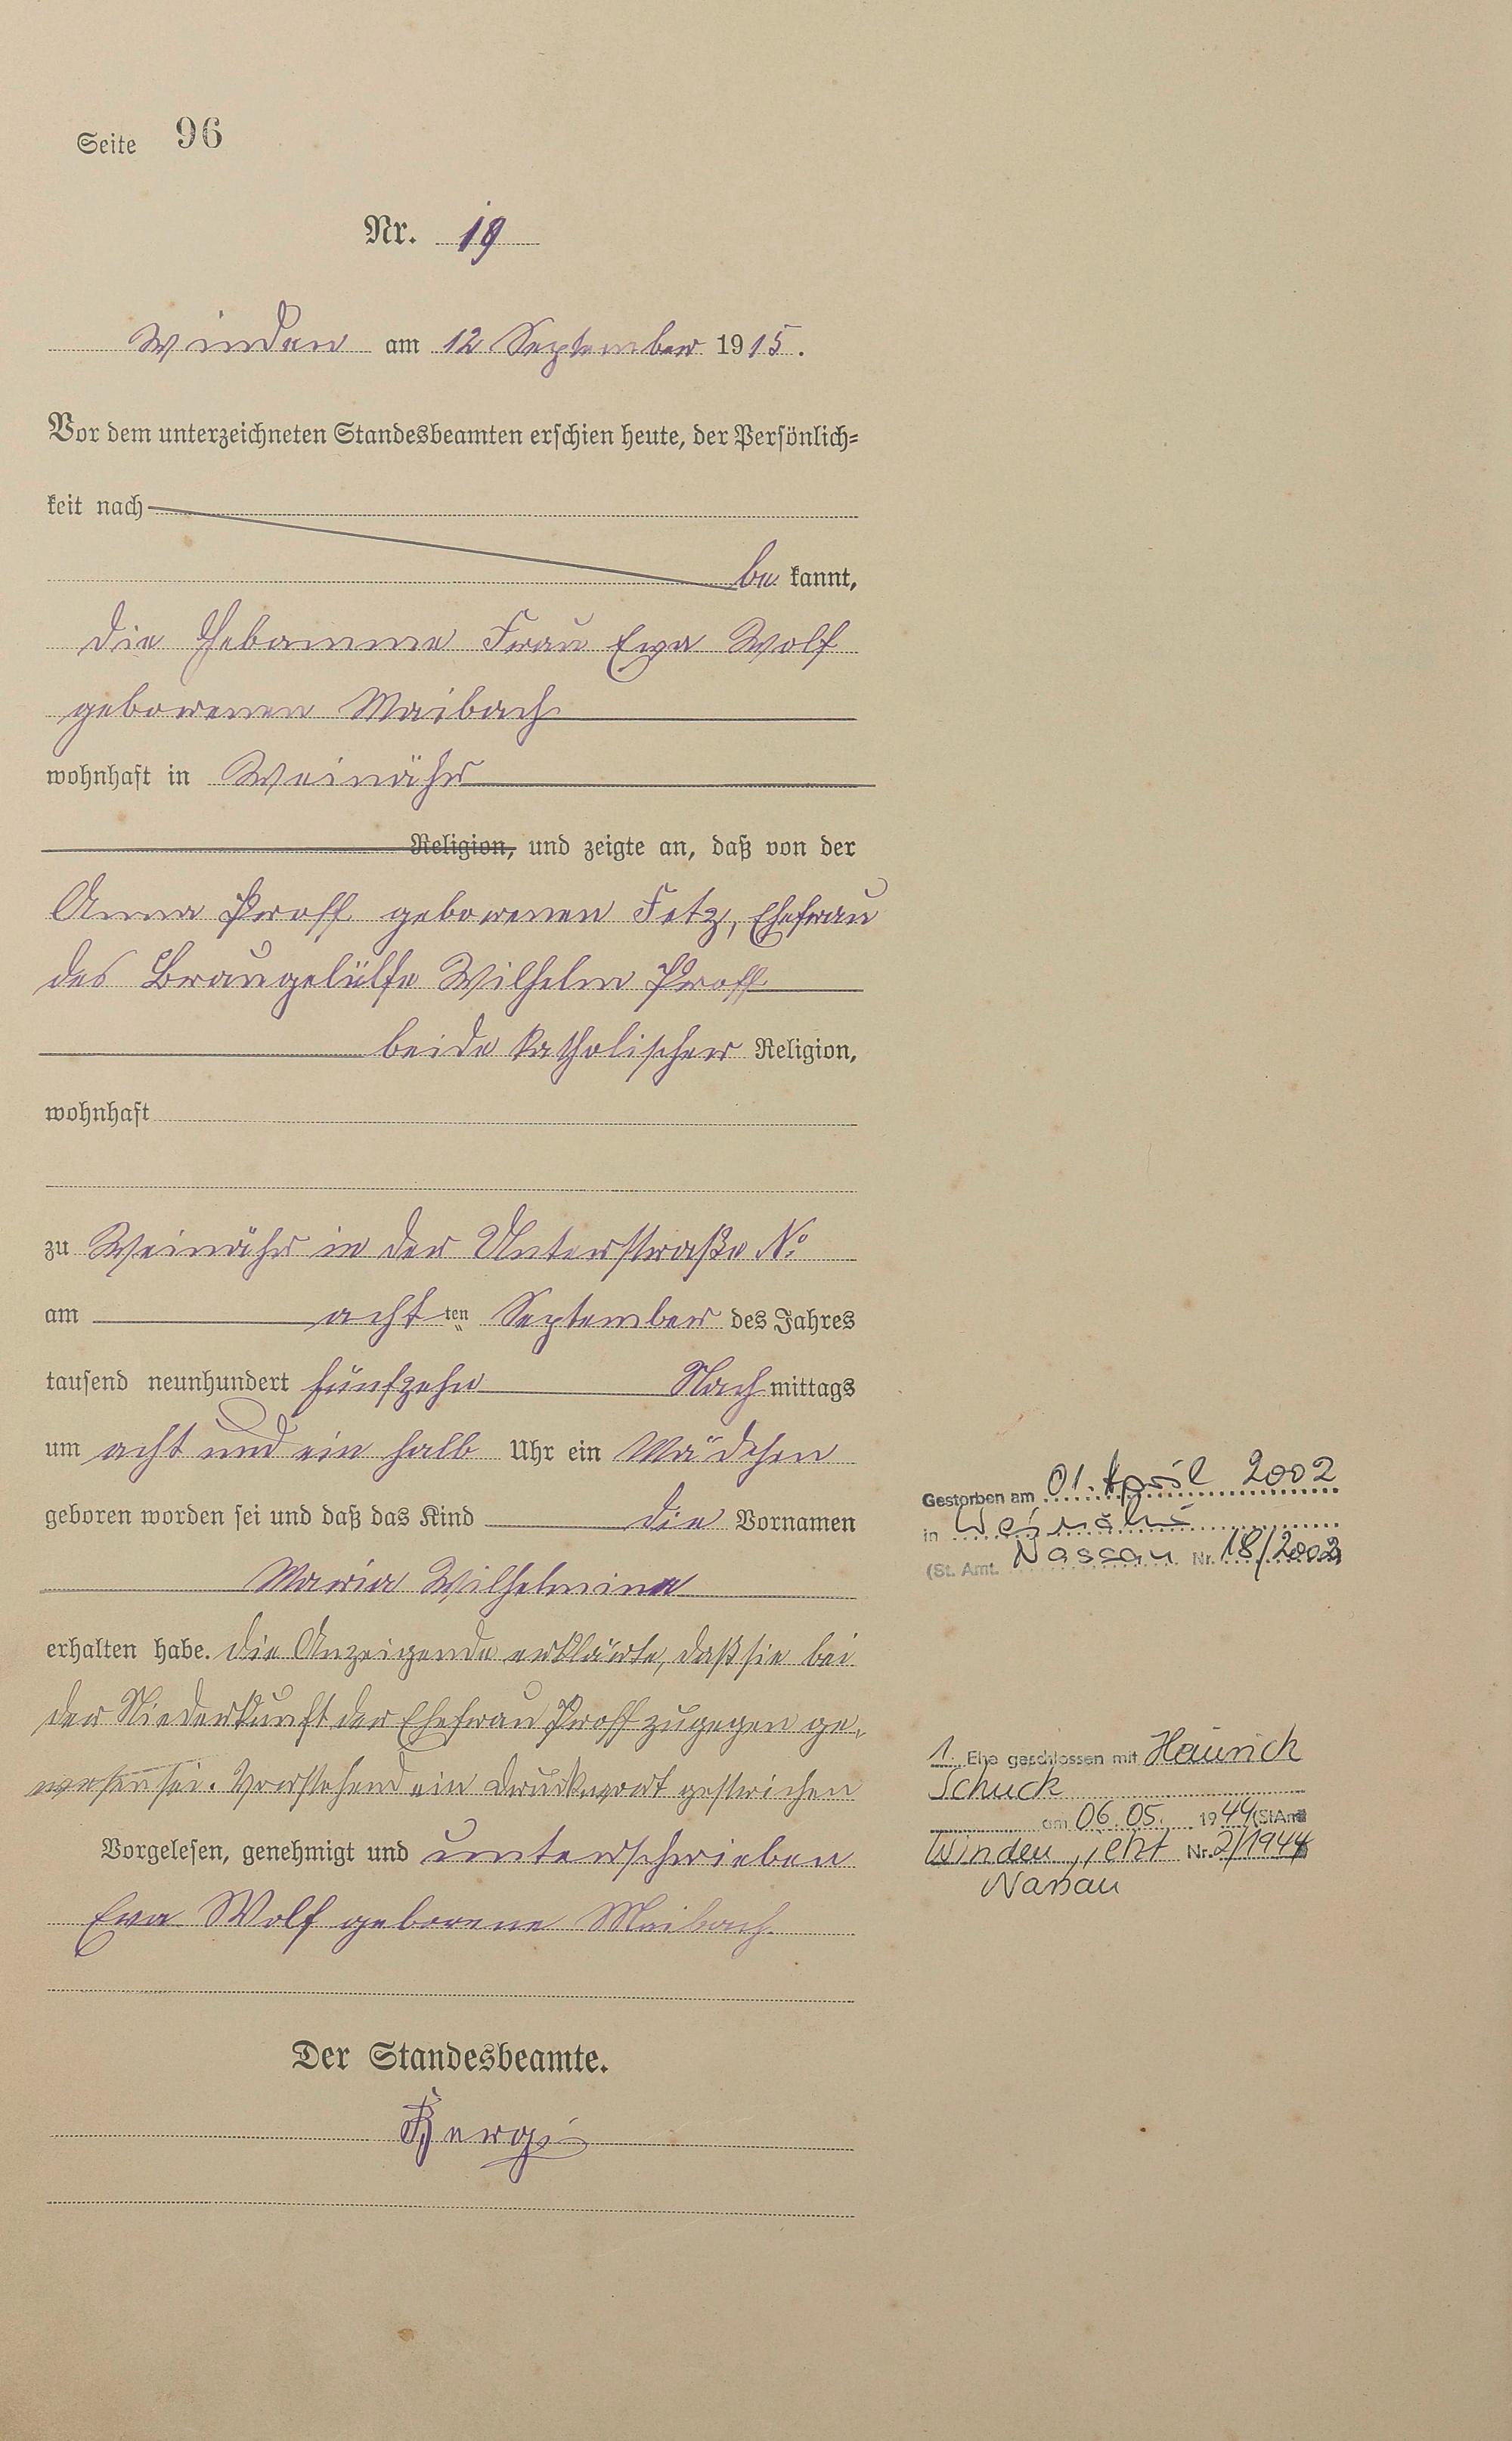 Seite 96
Nr. 19
Winden am 12 September 1915.
Vor dem unterzeichneten Standesbeamten erschien heute, der Persönlich=
keit nach
be kannt,
die Hebamme Frau Eva Wolf
geborenen Maibach
wohnhaft in Weinähr
Religion, und zeigte an, daß von der
Anna Proff geborenen Fetz, Ehefrau
des Braugehülfe Wilhelm Proff
beide katholischer Religion,
wohnhaft
zu Weinähr in der Unterstraße No
am achtten September des Jahres
tausend neunhundert fünfzehn Nach mittags
um acht und ein halb Uhr ein Mädchen
geboren worden sei und daß das Kind die Vornamen
Maria Wilhelmina
erhalten habe. Die Anzeigende erklärte, daß sie bei
der Niederkunft der Ehefrau Proff zugegen ge-
wesen sei. Vorstehend ein Druckwort gestrichen
Vorgelesen, genehmigt und unterschrieben
Eva Wolf geborene Maibach
Der Standesbeamte.
Gestorben am 01. April 2002
in Weinähr
(St. Amt. Nassau Nr. 18/2002
1. Ehe geschlossen mit Heinrich
Schuck
am 06.05. 1944 (StAmt
Winden, jetzt Nr. 2/1944
Nassau